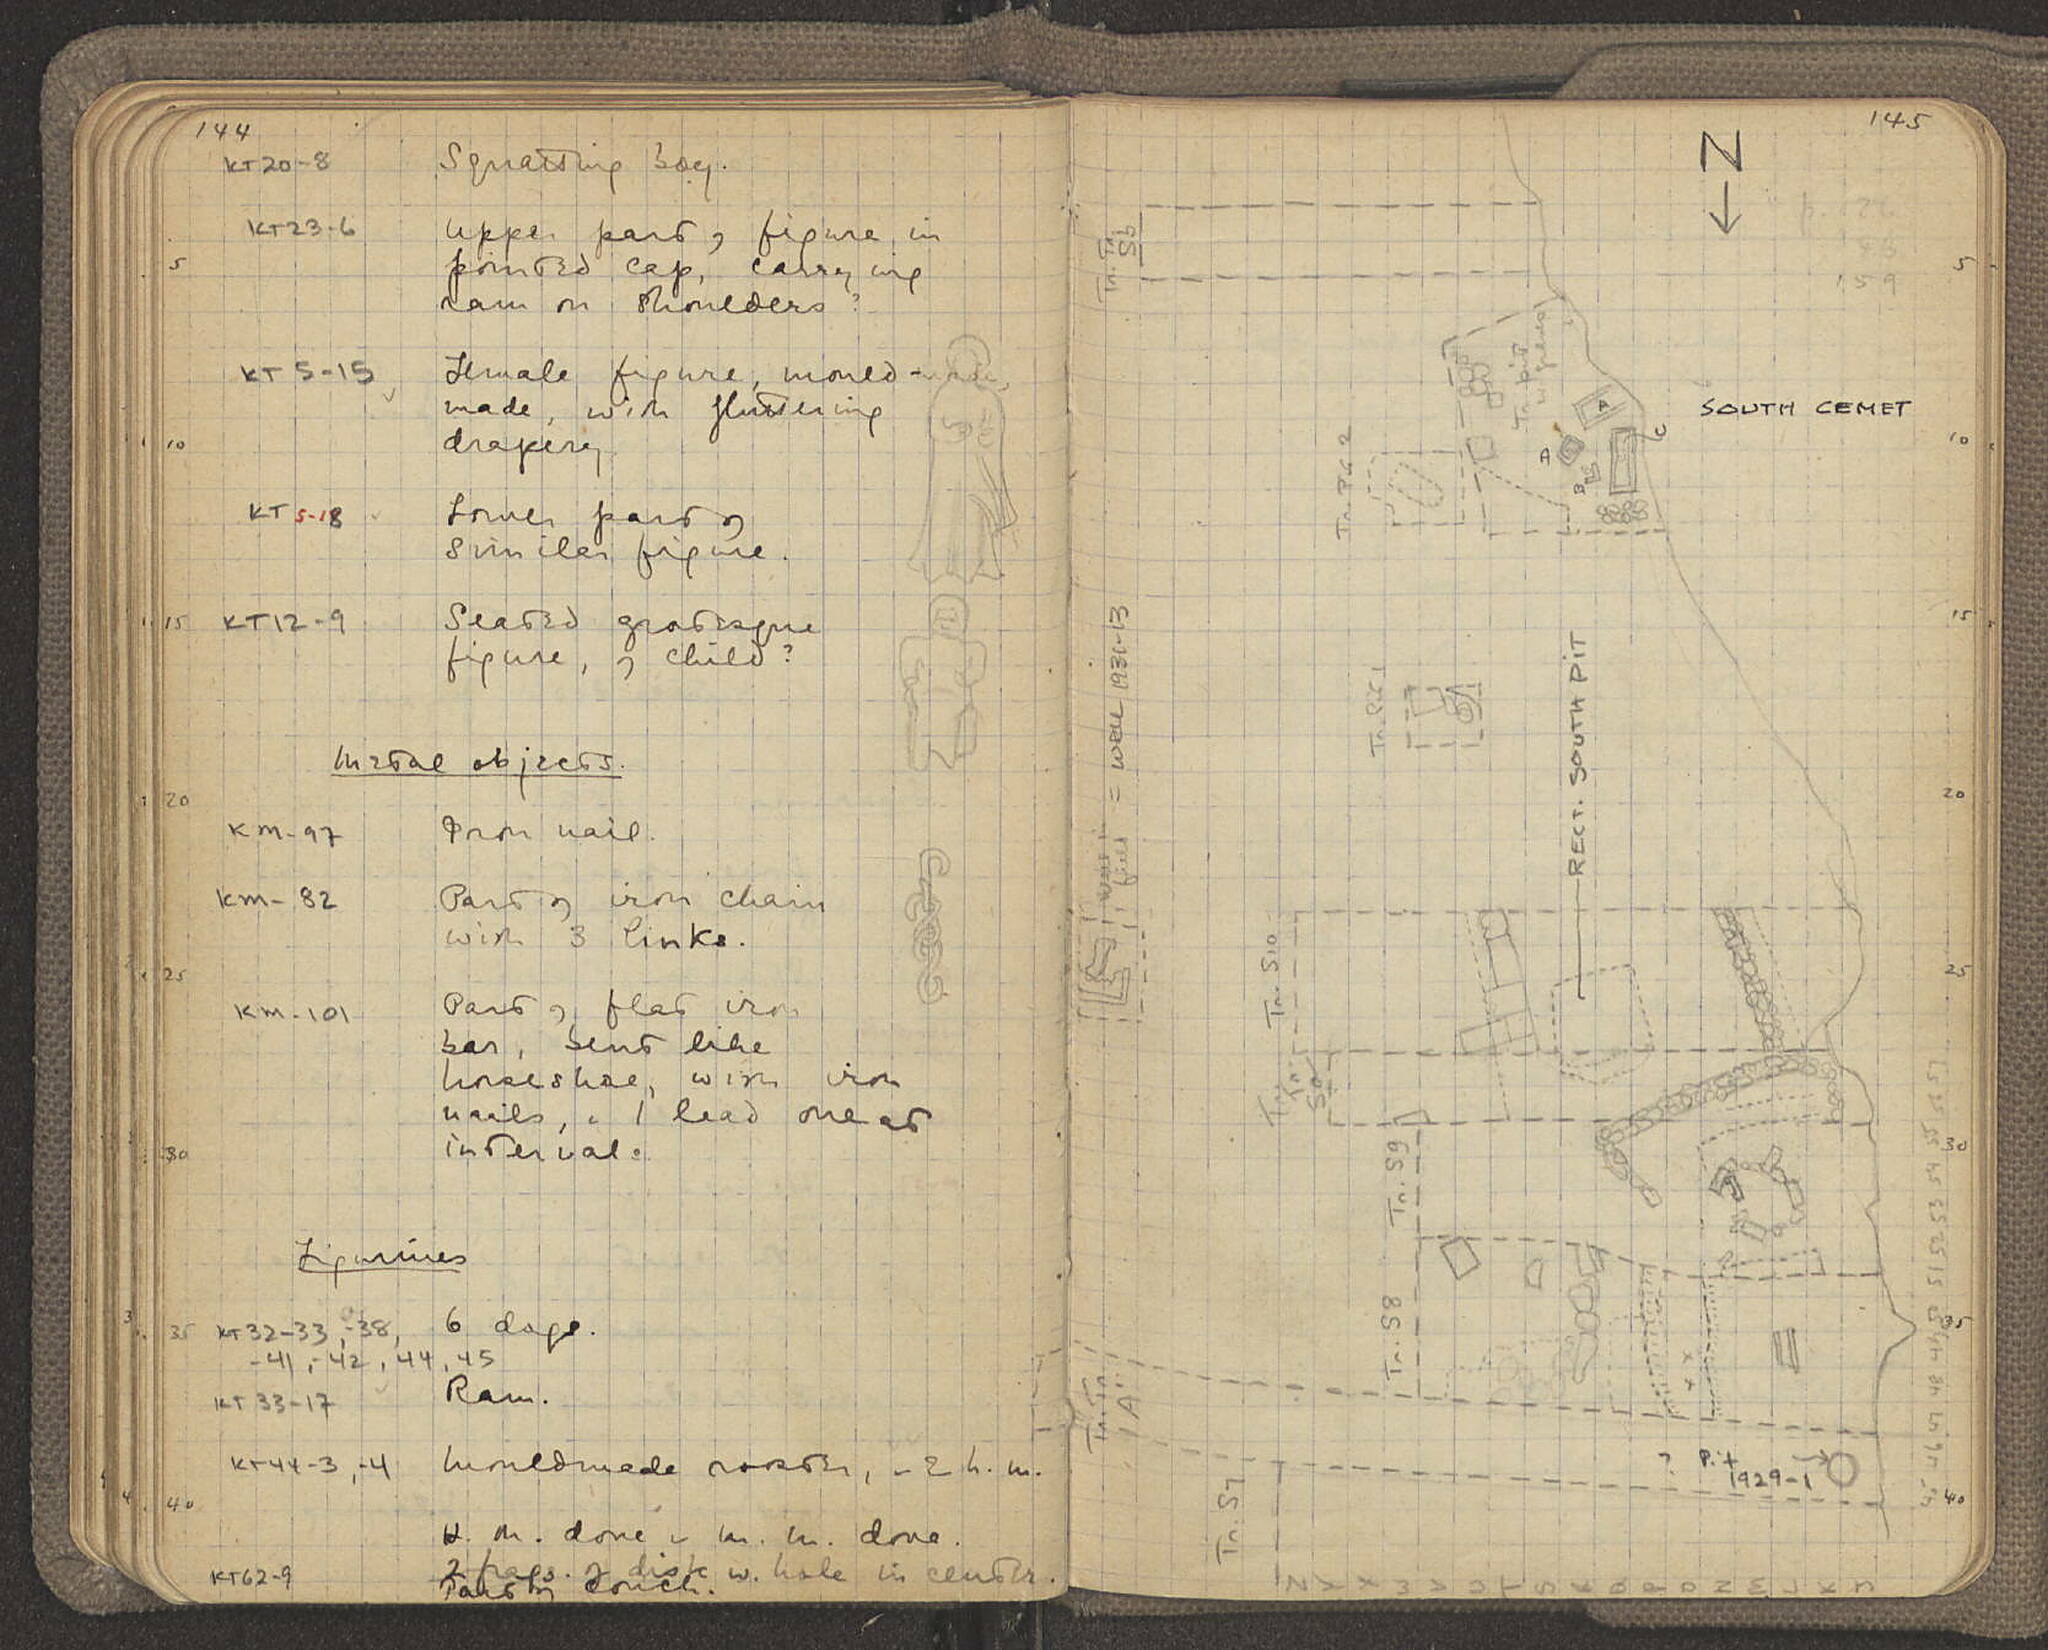 144
KT20-8 Squatting boy.
KT23-6 Upper part of figure in
5 pointed cap, carrying
ram on shoulders?
KT 5-15 Female figure, mould-
made, with fluttering
10 drapery
KT 5-18 Lower part of
similar figure.
15 KT12-9 Seated grotesque
figure, of child?
Metal objects.
20
KM-97 Iron nail.
KM-82 Part of iron chain
with 3 links.
25
KM-101 Part of flat iron
bar, bent like
horseshoe, with iron
nails, & 1 lead one at
30 intervals.
Figurines
35 KT32-33, -38, 6 dogs.
-41, -42, 44, 45
KT 33-17 Ram.
KT44-3, -4 Mouldmade rooster, & 2 h. m.
40
H. M. dove & m. m. dove.
KT62-9 2 frags. of disk w. hole in center.
Part of couch.
145
N
159
5
Tr. Tn
S6
Tr. pit
SOUTH CEMET
10
A
A
B
C
Tr. Pit 2
15
= WELL 1931-13
Tr. Pit 1
RECT. SOUTH PIT
20
25
Tr. S10
30
Tr. S9
35
Tr. S8
Tr. Tn
"A"
? Pit
1929-1
40
Tr. S7
45 46 47 48 49 50 51 52 53 54 55 56 57
Z Y X W V U T S R Q P O N M L K J